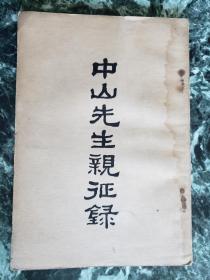 中山先生親征録